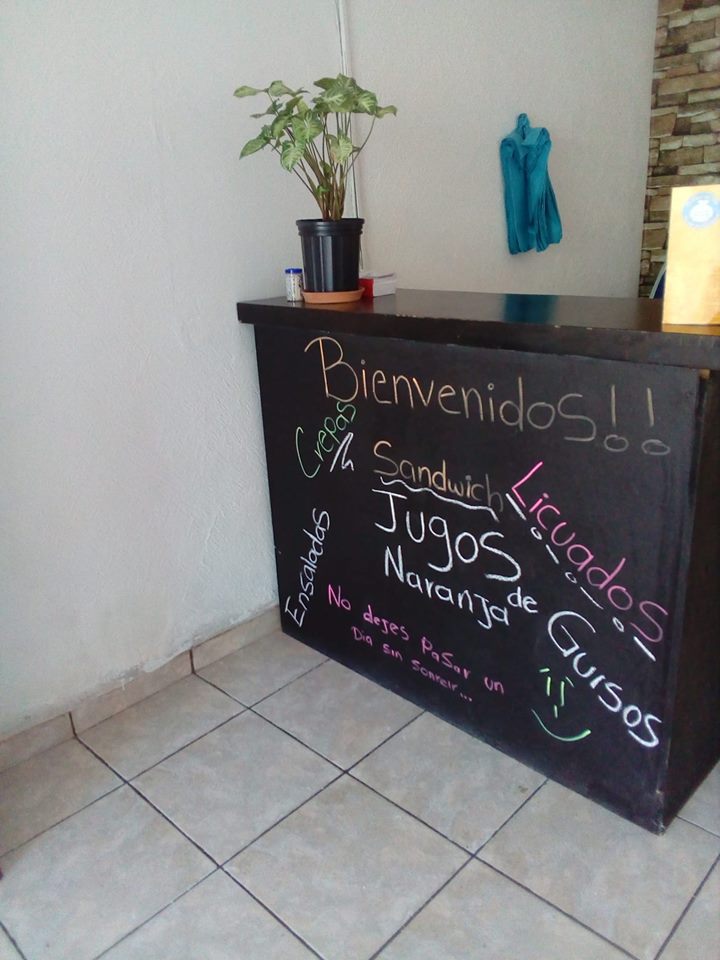 Bienvenidos!!
Crepas
Sandwich
Licuados
Jugos
de
Naranja
Guisos
Ensaladas
No dejes Pasar un
Dia sin sonreir...